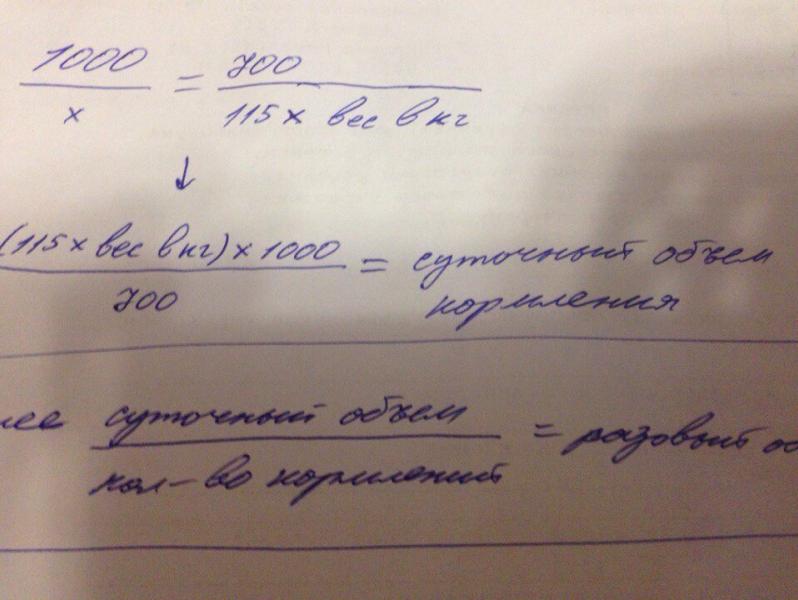 1000 / x = 700 / 115 х вес в кг
↓
(115 х вес в кг) х 1000 / 700 = суточный объем кормления
суточный объем / кол-во кормлений = разовый